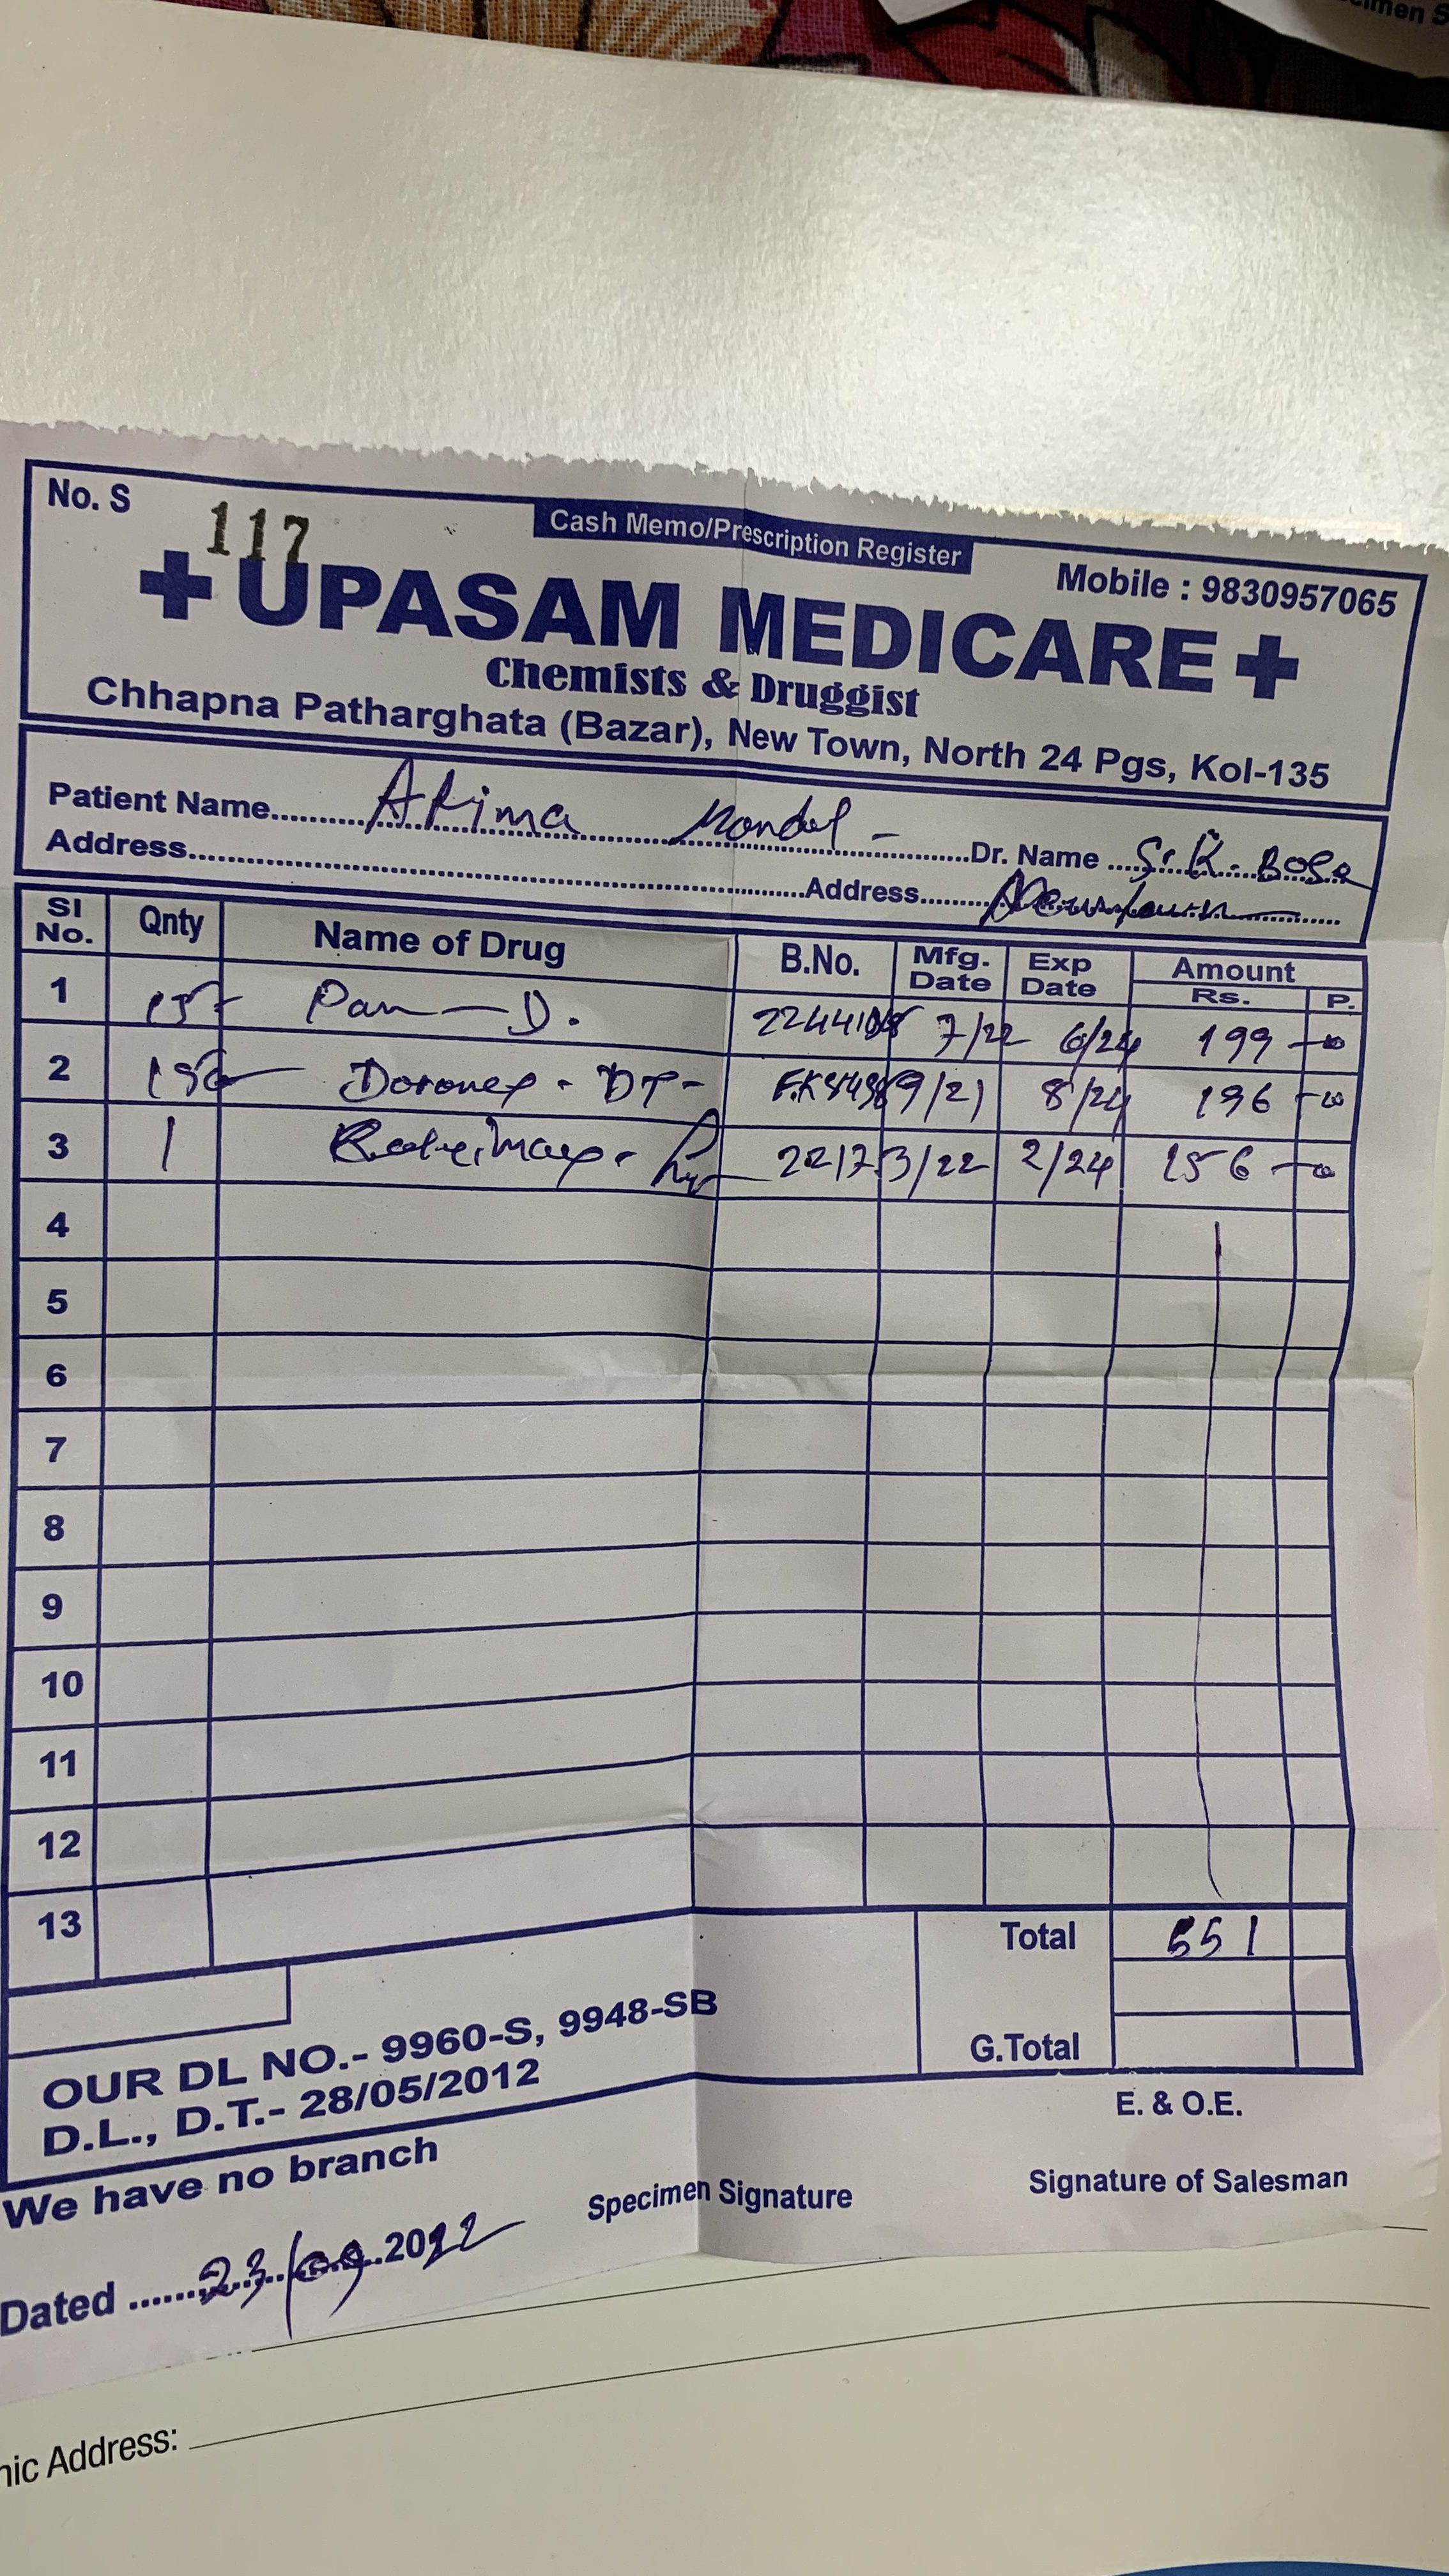 cimen S
No. S 117 Cash Memo/Prescription Register Mobile : 9830957065
+ UPASAM MEDICARE +
Chemists & Druggist
Chhapna Patharghata (Bazar), New Town, North 24 Pgs, Kol-135
Patient Name Mondal - Dr. Name S.K. Bose
Address Address Newtown
Sl No. Qnty Name of Drug B.No. Mfg. Date Exp Date Amount Rs. P.
1 Pan-D. 7/22 6/24 199
2 - DT- 9/21 8/24 196
3 1 2217 3/22 2/24 156
4
5
6
7
8
9
10
11
12
13
Total 551
G.Total
OUR DL NO.- 9960-S, 9948-SB
D.L., D.T.- 28/05/2012
E. & O.E.
We have no branch
Specimen Signature Signature of Salesman
Dated 23/09 2022
nic Address: